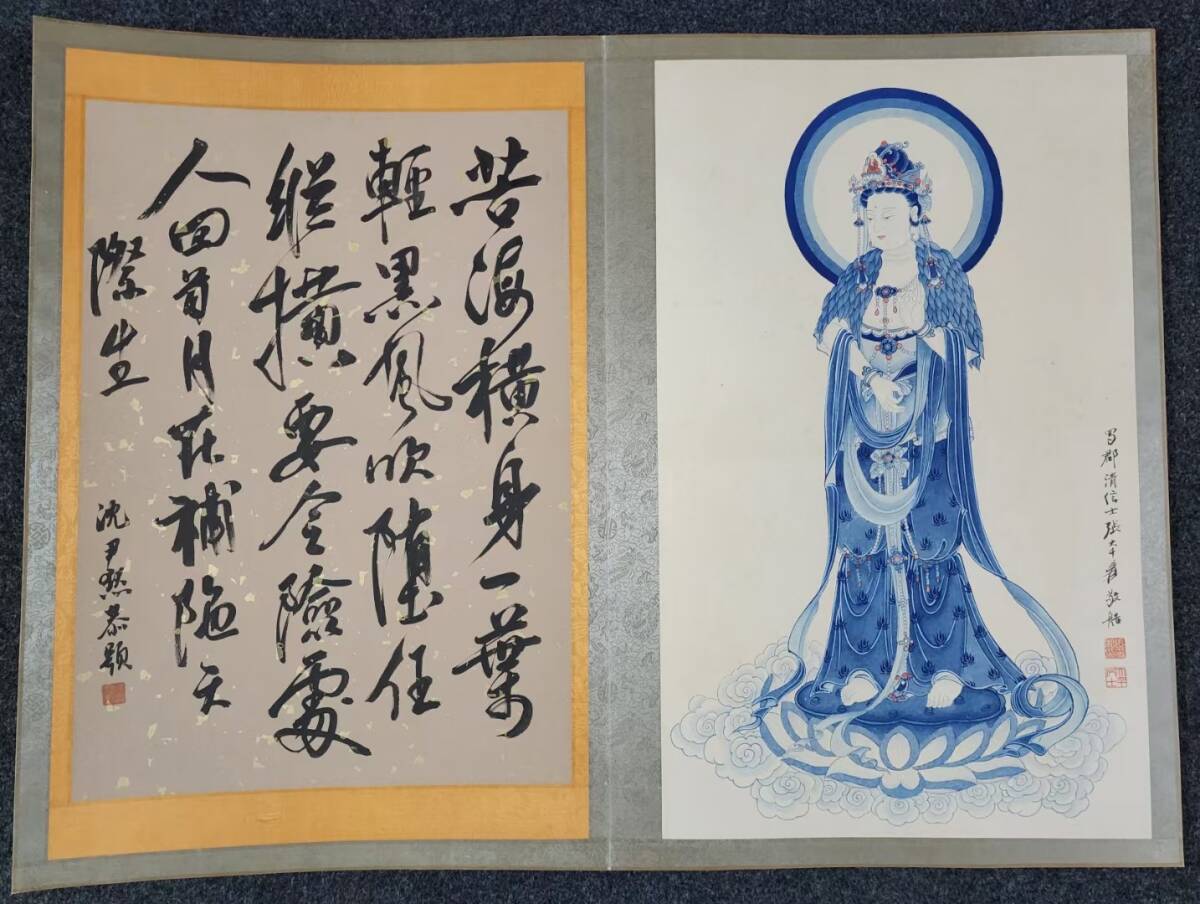 蜀郡清信士張大千爰敬艁
苦海橫身一葉
輕黑風吹墮任
縱橫要令險處
人回首月在補陁天
際生
沈尹默恭題